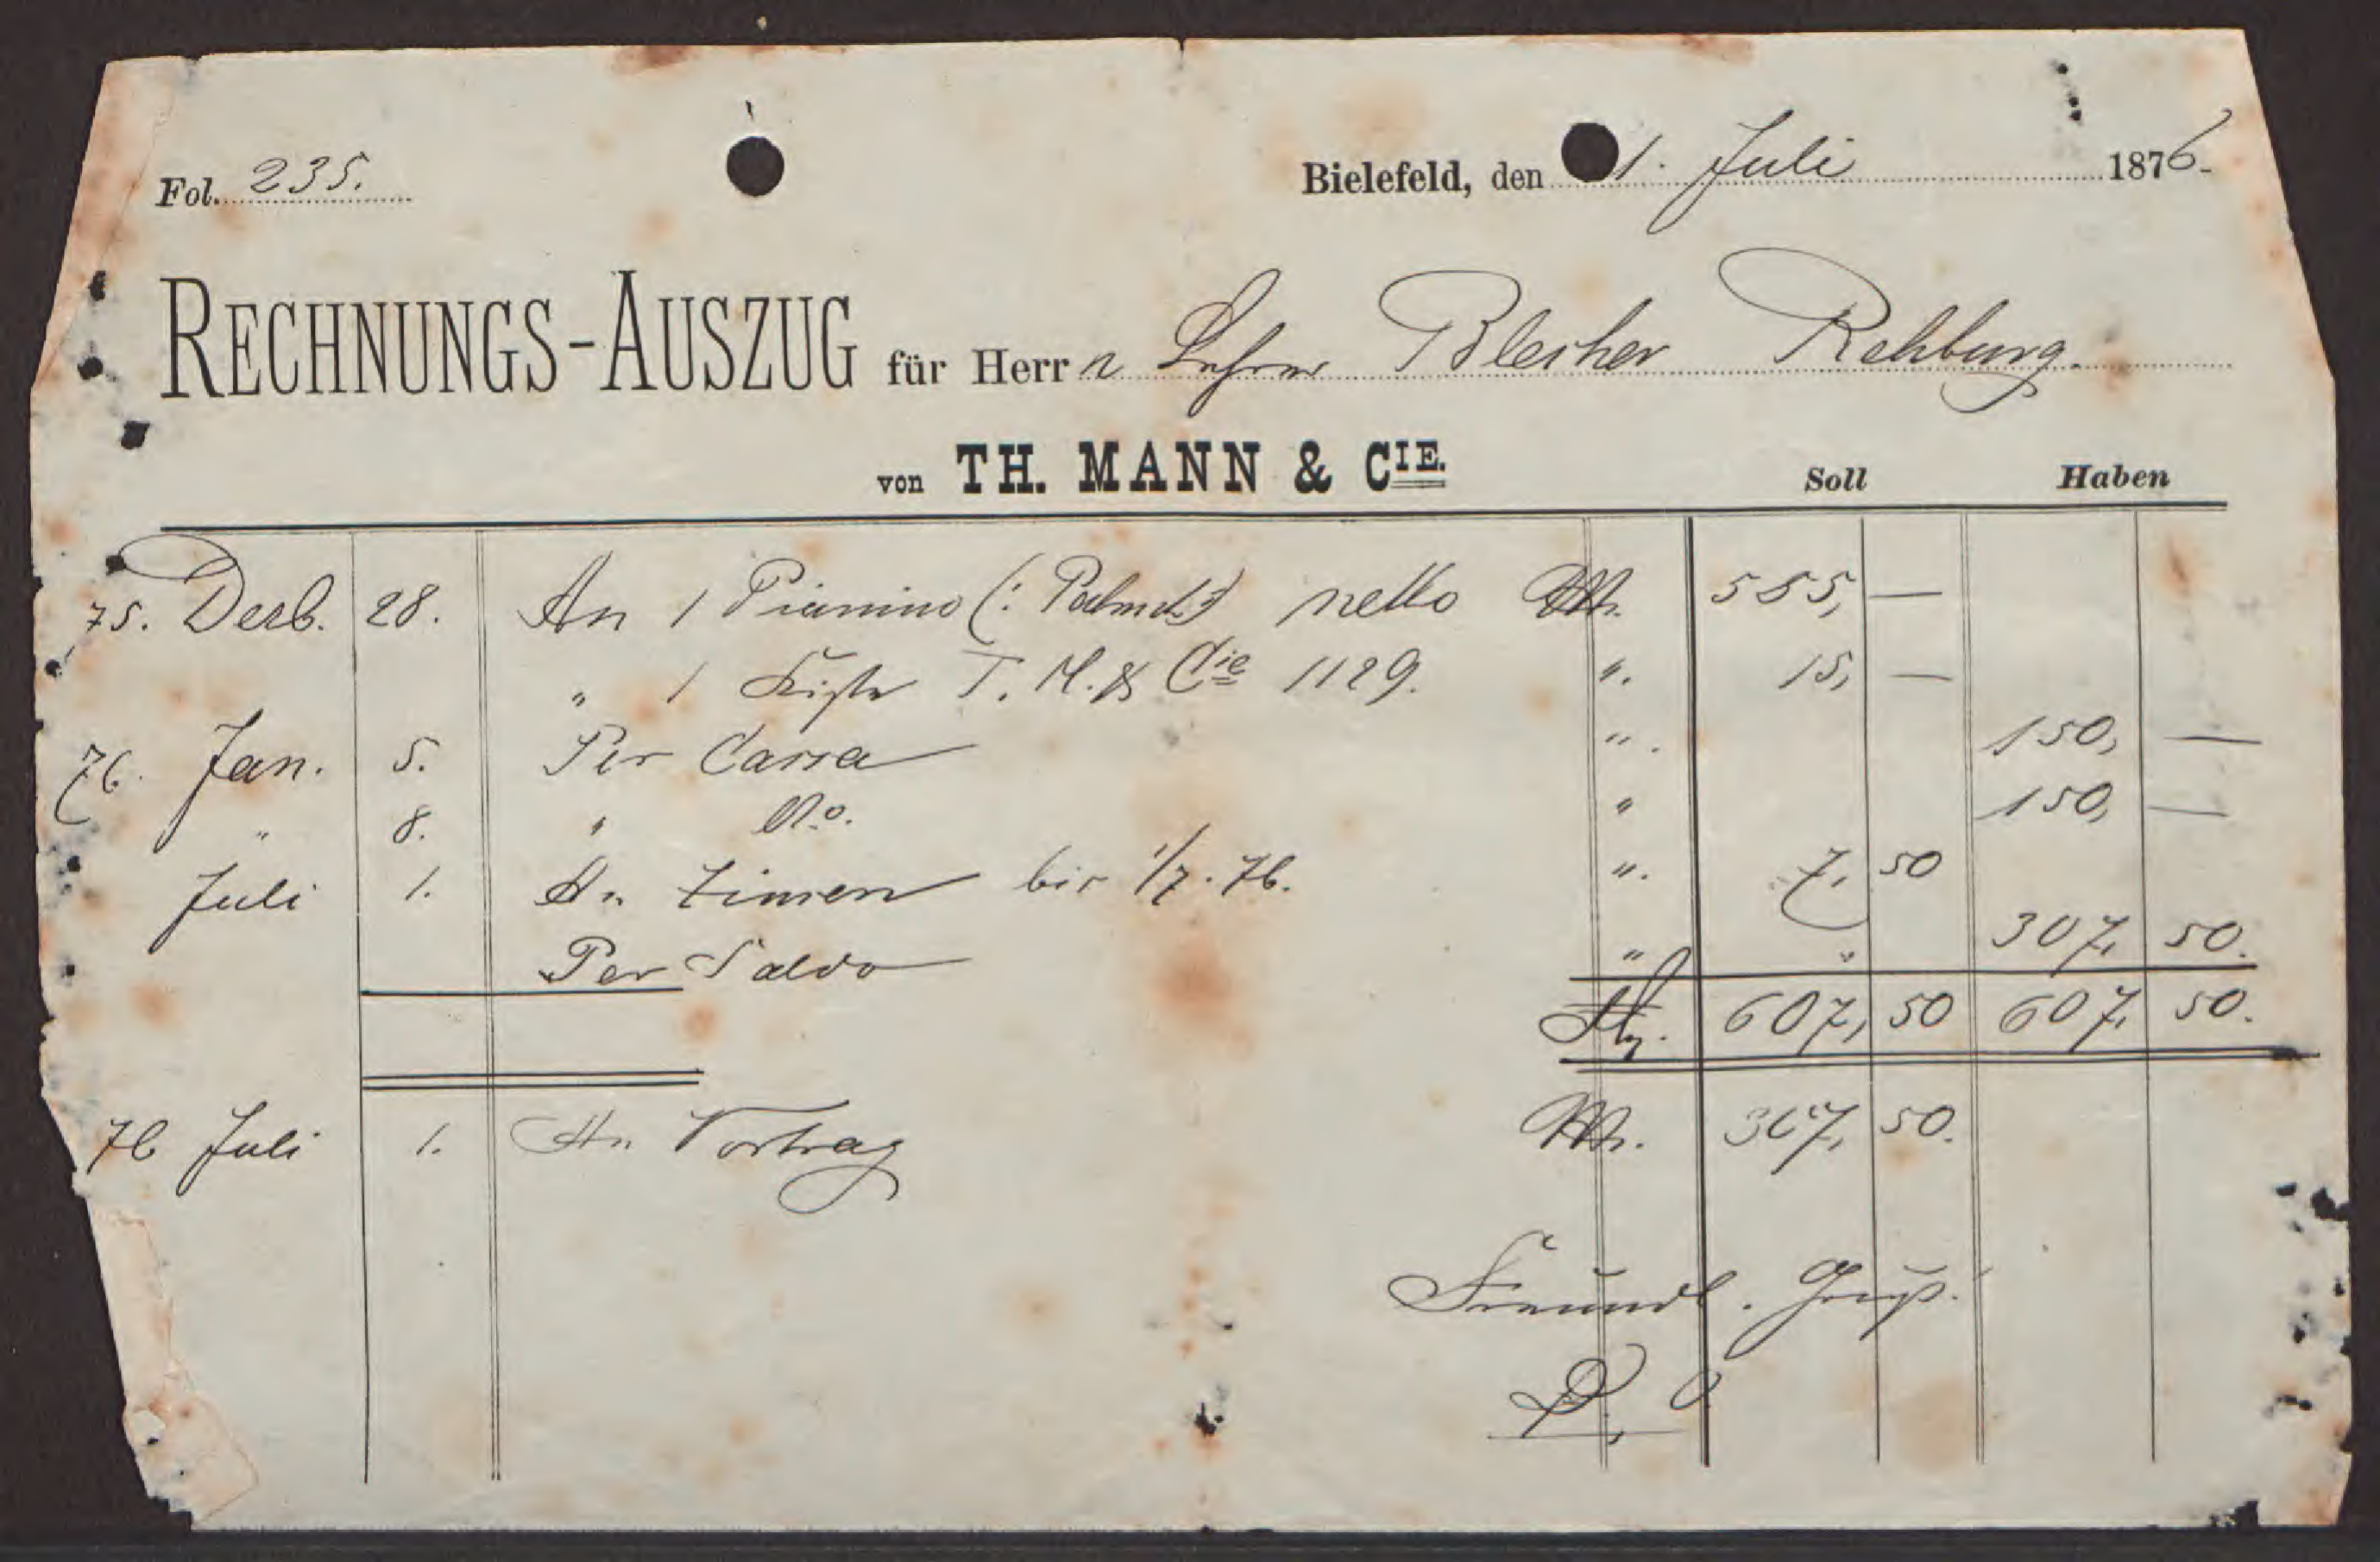 Fol. 235.
Bielefeld, den 1. Juli 1876.
RECHNUNGS-AUSZUG für Herrn Lehrer Blecher Rehburg.
von TH. MANN & CIE.
Soll Haben
75. Decb. 28. An 1 Pianino netto M. 585, —
" 1 Kiste T. M. & Cie 1129. ". 15, —
76. Jan. 5. Per Cassa ". 150, —
" 8. " do. " 150, —
Juli 1. An Zinsen bis 1/7. 76. ". 7, 50
Per Saldo " " 307, 50.
M. 607, 50 607, 50.
76 Juli 1. An Vortrag M. 307, 50.
Freundl. Gruß.
D. O.